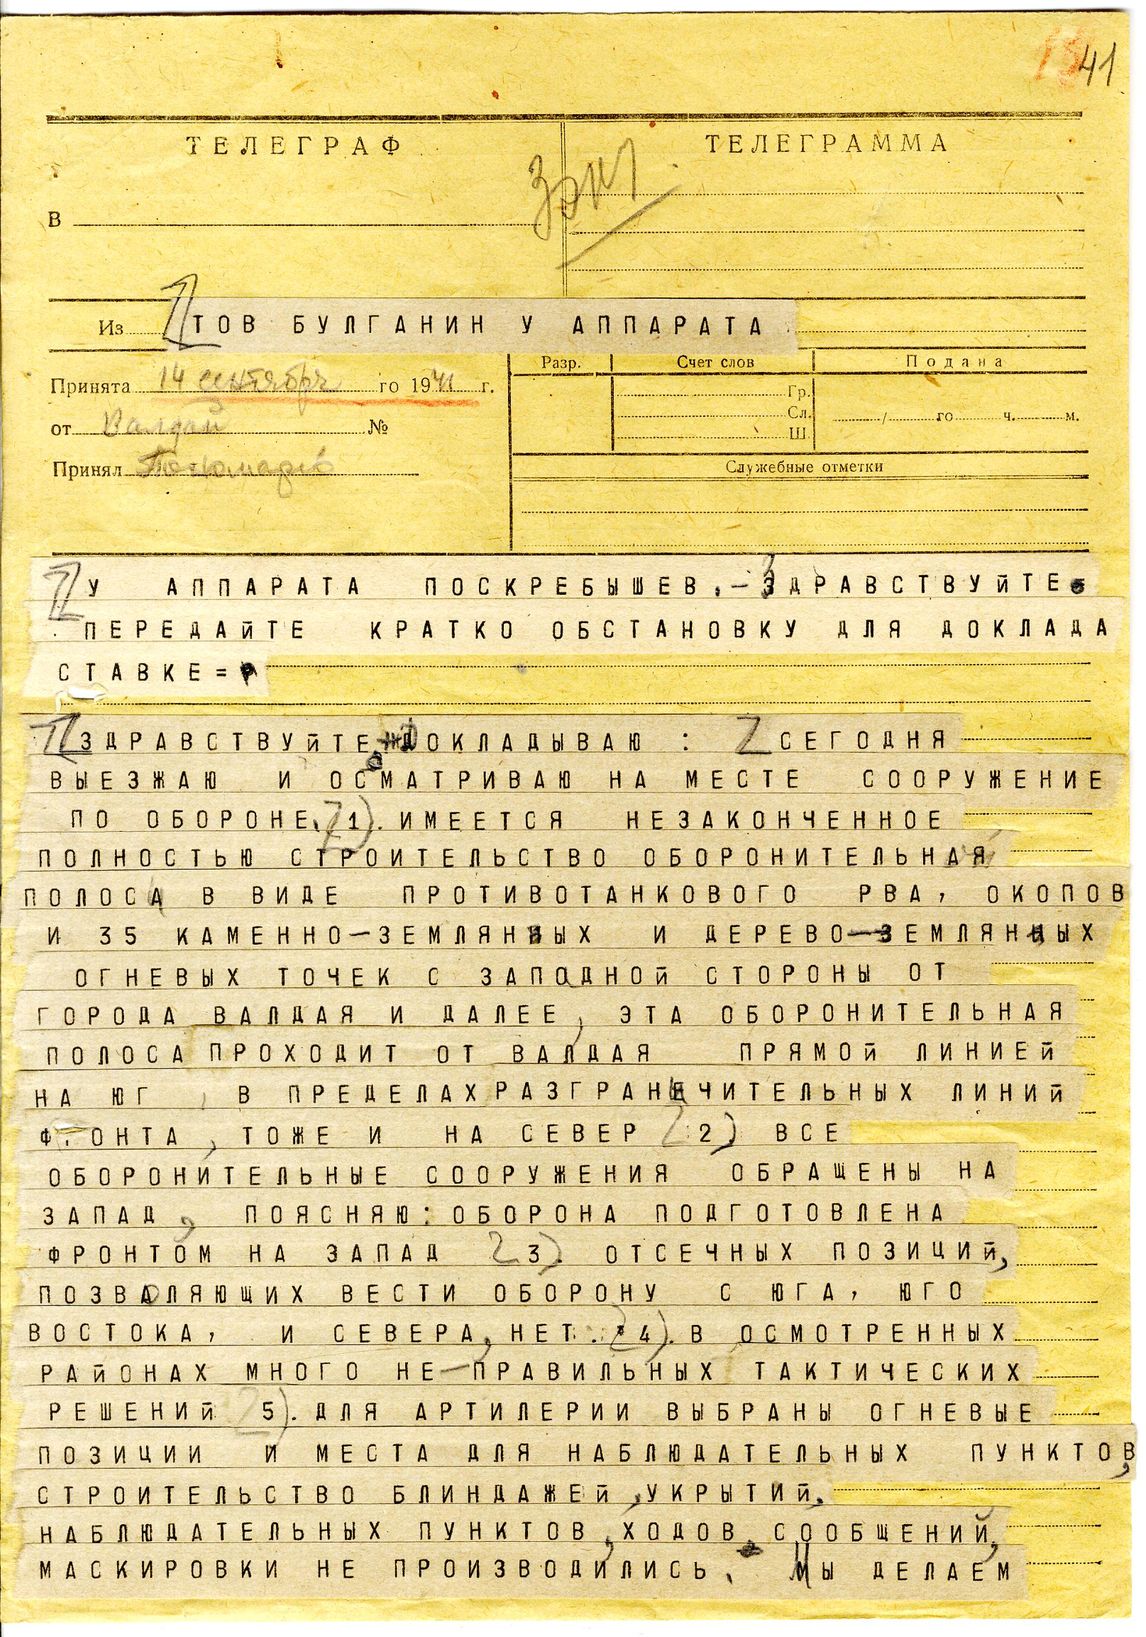 41
ТЕЛЕГРАФ
ТЕЛЕГРАММА
В
Из ТОВ БУЛГАНИН У АППАРАТА
Разр.
Счет слов
Подана
Принята 14 сентября го 1941 г.
Гр.
Сл.
Ш.
/ го ч. м.
от Валдай №
Принял
Служебные отметки
У АППАРАТА ПОСКРЕБЫШЕВ.-ЗДРАВСТВУЙТЕ
ПЕРЕДАЙТЕ КРАТКО ОБСТАНОВКУ ДЛЯ ДОКЛАДА
СТАВКЕ=
ЗДРАВСТВУЙТЕ. ДОКЛАДЫВАЮ : СЕГОДНЯ
ВЫЕЗЖАЮ И ОСМАТРИВАЮ НА МЕСТЕ СООРУЖЕНИЕ
ПО ОБОРОНЕ. 1). ИМЕЕТСЯ НЕЗАКОНЧЕННОЕ
ПОЛНОСТЬЮ СТРОИТЕЛЬСТВО ОБОРОНИТЕЛЬНАЯ
ПОЛОСА В ВИДЕ ПРОТИВОТАНКОВОГО РВА, ОКОПОВ
И 35 КАМЕННО-ЗЕМЛЯННЫХ И ДЕРЕВО-ЗЕМЛЯНЫХ
ОГНЕВЫХ ТОЧЕК С ЗАПАДНОЙ СТОРОНЫ ОТ
ГОРОДА ВАЛДАЯ И ДАЛЕЕ, ЭТА ОБОРОНИТЕЛЬНАЯ
ПОЛОСА ПРОХОДИТ ОТ ВАЛДАЯ ПРЯМОЙ ЛИНИЕЙ
НА ЮГ , В ПРЕДЕЛАХ РАЗГРАНИЧИТЕЛЬНЫХ ЛИНИЙ
ФРОНТА, ТОЖЕ И НА СЕВЕР 2) ВСЕ
ОБОРОНИТЕЛЬНЫЕ СООРУЖЕНИЯ ОБРАЩЕНЫ НА
ЗАПАД, ПОЯСНЯЮ: ОБОРОНА ПОДГОТОВЛЕНА
ФРОНТОМ НА ЗАПАД 3). ОТСЕЧНЫХ ПОЗИЦИЙ,
ПОЗВОЛЯЮЩИХ ВЕСТИ ОБОРОНУ С ЮГА, ЮГО
ВОСТОКА, И СЕВЕРА, НЕТ. 4). В ОСМОТРЕННЫХ
РАЙОНАХ МНОГО НЕ-ПРАВИЛЬНЫХ ТАКТИЧЕСКИХ
РЕШЕНИЙ 5). ДЛЯ АРТИЛЕРИИ ВЫБРАНЫ ОГНЕВЫЕ
ПОЗИЦИИ И МЕСТА ДЛЯ НАБЛЮДАТЕЛЬНЫХ ПУНКТОВ,
СТРОИТЕЛЬСТВО БЛИНДАЖЕЙ, УКРЫТИЙ,
НАБЛЮДАТЕЛЬНЫХ ПУНКТОВ, ХОДОВ СООБЩЕНИЙ,
МАСКИРОВКИ НЕ ПРОИЗВОДИЛИСЬ. МЫ ДЕЛАЕМ